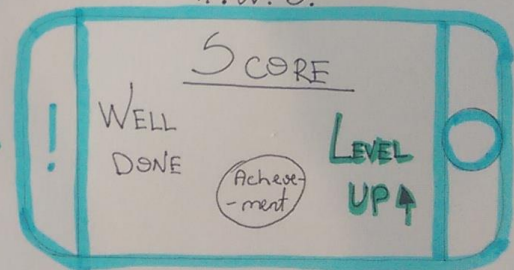 SCORE
WELL
DONE
Acheve-
-ment
LEVEL
UP